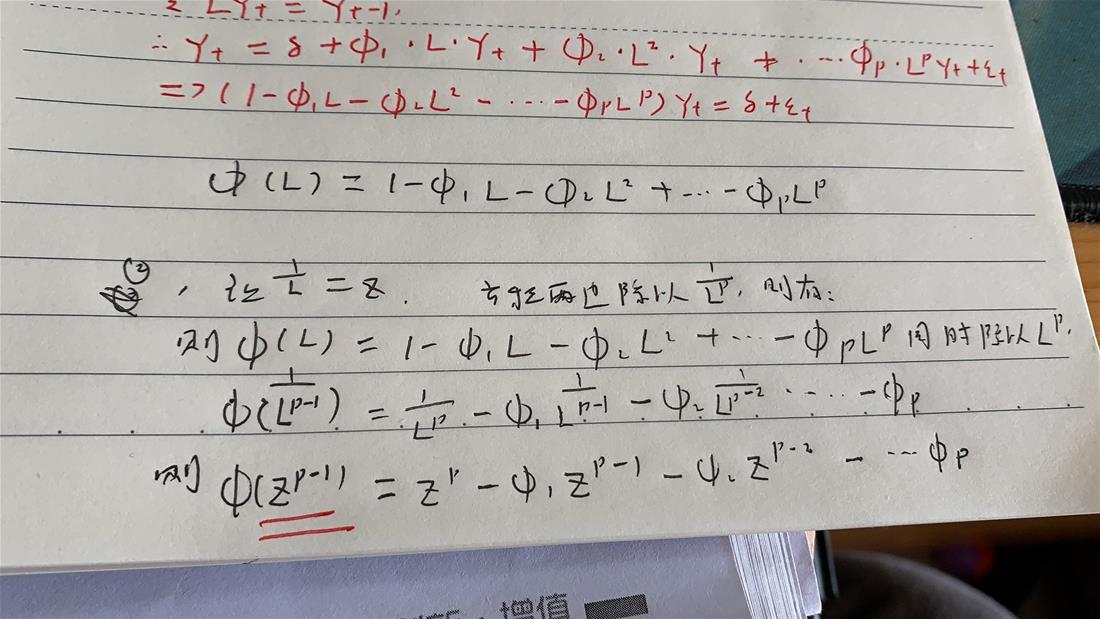 LYt = Yt-1,
∴ Yt = δ + Φ₁ · L · Yt + Φ₂ · L² · Yt + · ··· Φp · LᵖYt + εt
=> (1 - Φ₁L - Φ₂L² - ····· - ΦpLᵖ) Yt = δ + εt
Φ(L) = 1 - Φ₁L - Φ₂L² + ··· - ΦpLᵖ
② , 设 1/L = z. 方程两边除以 1/Lᵖ, 则有:
则 Φ(L) = 1 - Φ₁L - Φ₂L² + ··· - ΦpLᵖ 同时除以Lᵖ.
Φ(1/Lᵖ⁻¹) = 1/Lᵖ - Φ₁ 1/Lᵖ⁻¹ - Φ₂ 1/Lᵖ⁻² ····· - Φp
则 Φ(zᵖ⁻¹) = zᵖ - Φ₁zᵖ⁻¹ - Φ₂zᵖ⁻² - ··· Φp
增值